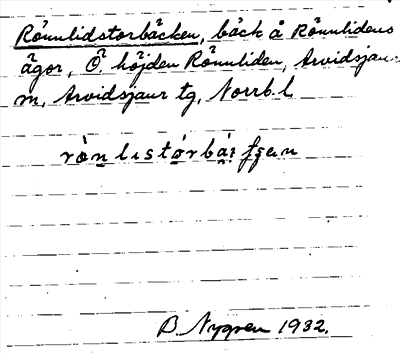 Rönnlidstorbäcken, bäck å Rönnlidens
ägor, Ö. höjden Rönnliden, Arvidsjaur
m, Arvidsjaur tg, Norrb. l
B Nygren 1932.